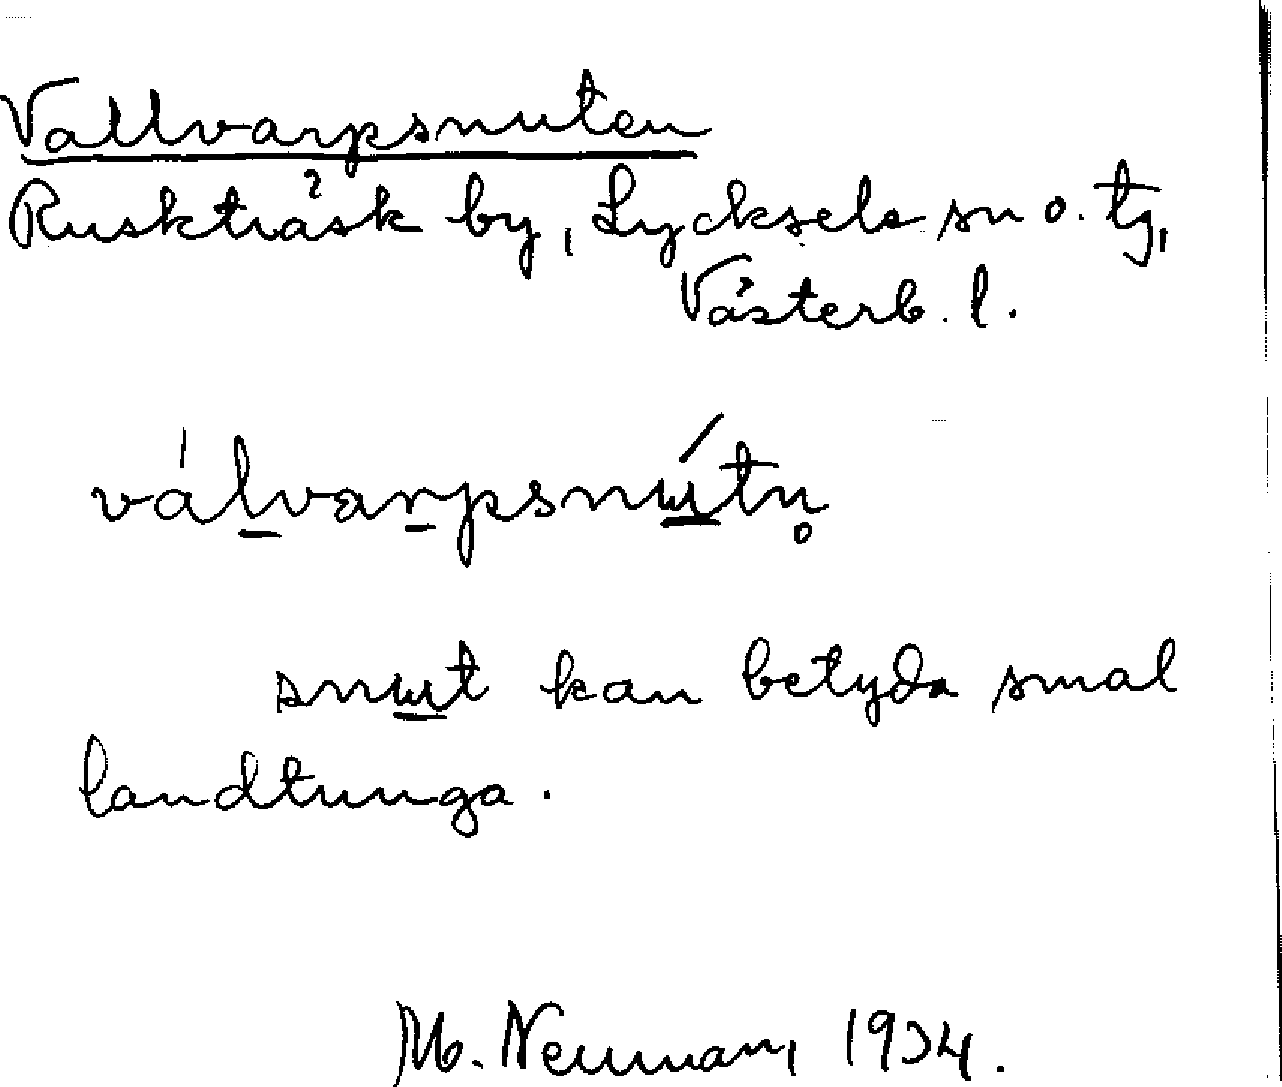 Vallvarpsnuten
Ruskträsk by, Lycksele sn o. tg,
Västerb. l.
válvarpsnɯ́tn̥
snɯt kan betyda smal
landtunga.
M. Neuman, 1934.